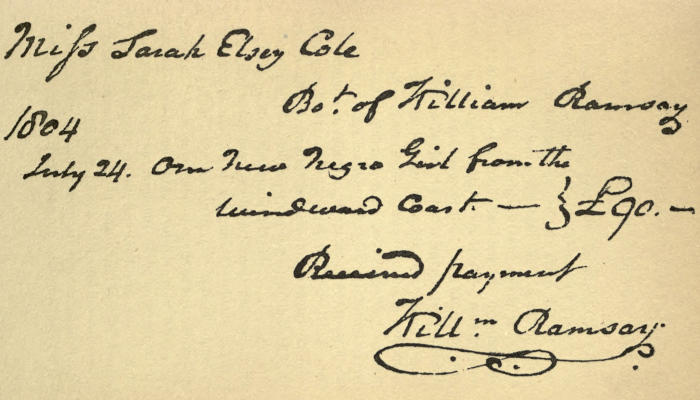 Miss Sarah Elsey Cole
Bot. of William Ramsay
1804
July 24. One New Negro Girl from the
windward Coast — } £90. —
Received payment
Willm Ramsay